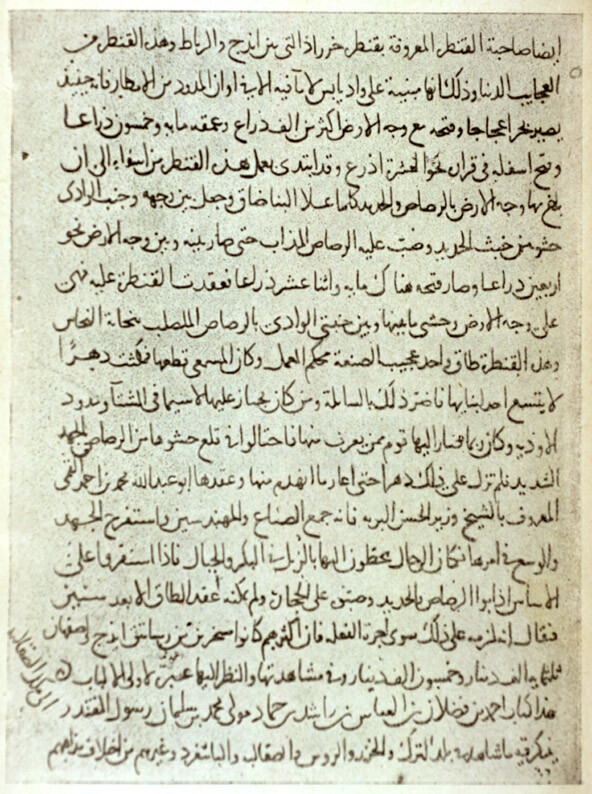 ايضا صاحبة القنطر المعروفة بقنطر خرزاذ التى بين ايذج والرباط وهذه القنطر من
العجايب الدنيا وذلك انها مبنية على واد يابس لا ماء فيه الا فى اوان المدود من الامطار فانه حينئذ
يصير بحرا عجاجا وفتحه مع وجه الارض اكثر من الف ذراع وعمقه مايه وخمسون ذراعا
وفتح اسفله فى قراره نحو العشرة اذرع وقد ابتدى بعمل هذه القنطر من اسفله الى ان
بلغ بها وجه الارض بالرصاص والحديد كلما علا البنا ضاق وجعل بين وجهه وجنب الوادى
حشو من خبث الحديد وصب عليه الرصاص المذاب حتى صار بينه وبين وجه الارض نحو
اربعين ذراعا وصار فتحه هناك مايه واثنا عشر ذراعا فعقدت القنطرة عليه فهى
على وجه الارض وحشى ما بينها وبين جنبتى الوادى بالرصاص المصلب بنحاتة النحاس
وهذه القنطرة طاق واحد عجيب الصنعة محكم العمل وكان المسمعى قطعها فمكثت دهرًا
لا يتسع احد لبنايها فاضر ذلك بالسابلة ومن كان يجتاز عليها لاسيما فى الشتآ ومدود
الاوديه وكان ربما صار اليها قوم ممن يقرب منها فاحتالوا فى قلع حشوها من الرصاص بالجهد
الشديد فلم تزل على ذلك دهرا حتى اعاد ما انهدم منها وعقدها ابو عبدالله محمد بن احمد القمى
المعروف بالشيخ وزير الحسن البويه فانه جمع الصناع والمهندسين واستفرغ الجهد
والوسع فى امرها فكان الرجال يحطون اليها بالزبل فى البكر والحبال فاذا استقروا على
الاساس اذابوا الرصاص بالحديد وصبوه على الحجاره ولم يمكنه عقد الطاق الا بعد سنتين
فيقال انه لزمه على ذلك سوى اجرة الفعله فان اكثرهم كانوا مسخرين من رساتيق ايذج واصفهان
ثلثمايه الف دينار وخمسون الف دينار وفى مشاهدتها والنظر اليها عبرة لاولى الالباب
هذا كتاب احمد بن فضلان بن العباس بن راشد بن حماد مولى محمد بن سلمان رسول المقتدر
الى ملك الصقالبه
يذكر فيه ما شاهد فى بلد الترك والخزر والروس والصقالبه والباشغرد وغيرهم من اختلاف مذاهبهم